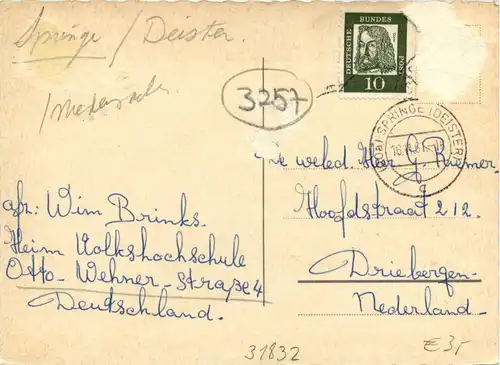 Springe / Deister.
DEUTSCHE BUNDES POST
10
3257
SPRINGE (DEISTER)
weled. Heer G. Riemer.
Hoofdstraat 212.
Driebergen-
Nederland-
afz: Wim Brinks.
Heim Volkshochschule
Otto-Wehner-Straße 4
Deutschland.
31832
€3,-